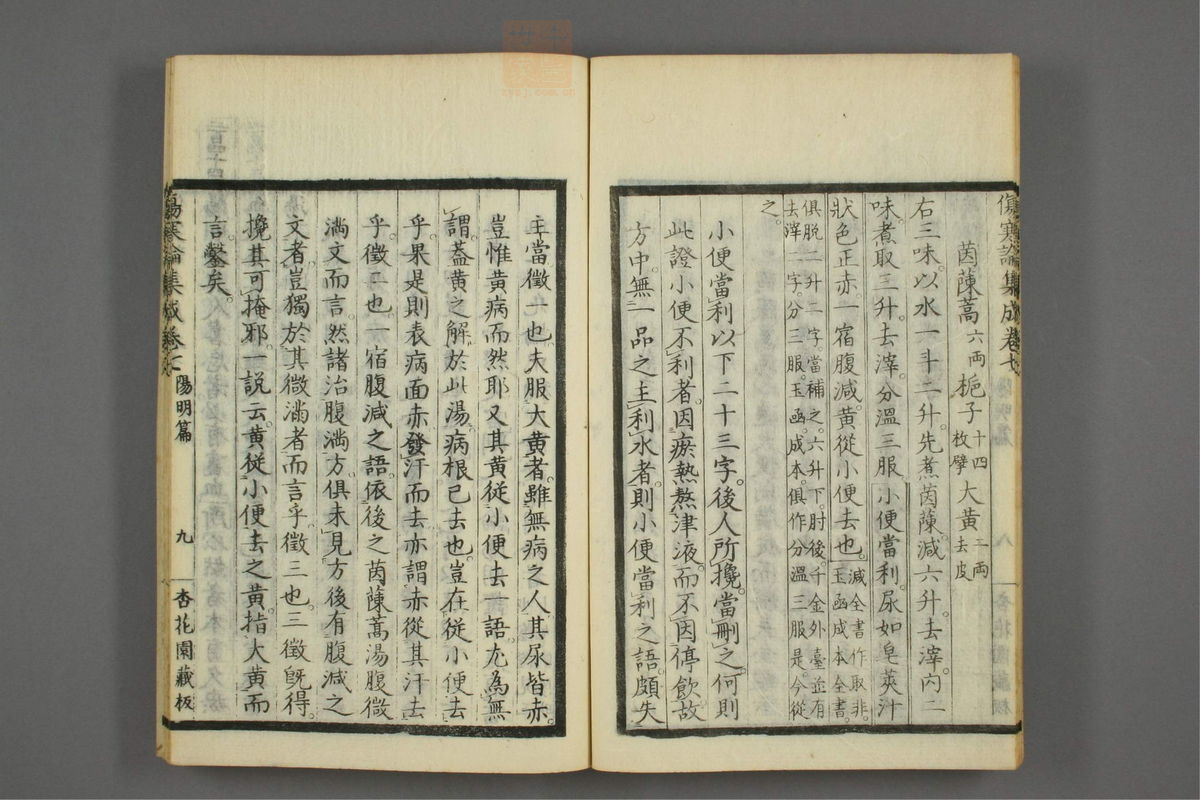 傷寒論集成卷七
茵蔯蒿六両梔子十四枚擘大黃二両去皮
右三味。以水一斗二升。先煮茵蔯。減六升。去滓。內二
味。煮取三升。去滓。分溫三服。小便當利。尿如皂莢汁
狀。色正赤。一宿腹減。黃從小便去也。減。全書作取。非。玉函成本全書。
俱脫二升二字。當補之。六升下。肘後。千金。外臺。並有
去滓二字。分三服。玉函。成本。俱作分溫三服。是。今從
之。
小便當利以下二十三字。後人所攙。當刪之。何則
此證小便不利者。因瘀熱熬津液。而不因停飲。故
方中無一品之主利水者。則小便當利之語。頗失
主當。徵一也。夫服大黃者。雖無病之人。其尿皆赤。
豈惟黃病而然耶。又其黃從小便去一語。尤為無
謂。蓋黃之解。於此湯。病根已去也。豈在從小便去
乎。果是則表病面赤。發汗而去。亦謂赤從其汗去
乎。徵二也。一宿腹減之語。依後之茵蔯蒿湯腹微
滿文而言。然諸治腹滿方。俱未見方後有腹減之
文者。豈獨於其微滿者而言乎。徵三也。三徵既得。
攙其可掩邪。一說云。黃從小便去之黃。指大黃而
言。鑿矣。
傷寒論集成卷七
陽明篇
九
杏花園藏板